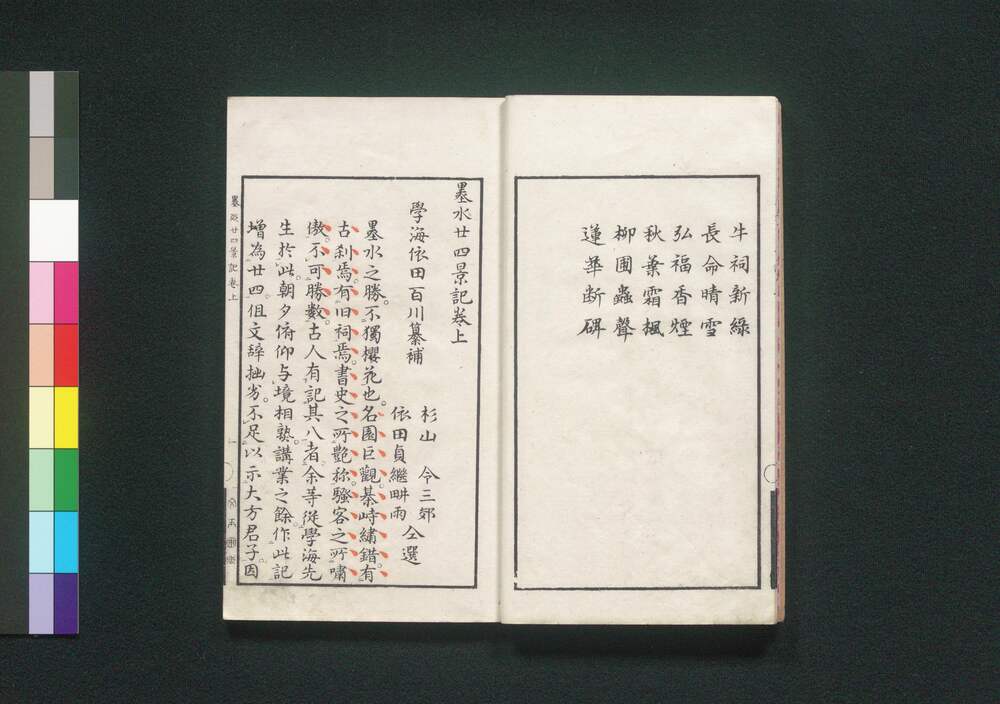 牛祠新綠
長命晴雪
弘福香煙
秋葉霜楓
柳圃蟲聲
蓮華斷碑
墨水廿四景記卷上
學海依田百川纂補
杉山 令三郊
依田貞繼畊雨
仝選
墨水之勝。不獨櫻花也。名園巨觀。棊峙繡錯。有
古刹焉。有旧祠焉。書史之所艷稱。騷客之所嘯
傲。不可勝數。古人有記其八者。余等從學海先
生於此。朝夕俯仰与境相熟。講業之餘。作此記
增為廿四。但文辞拙劣。不足以示大方君子。因
墨水廿四景記卷上
一